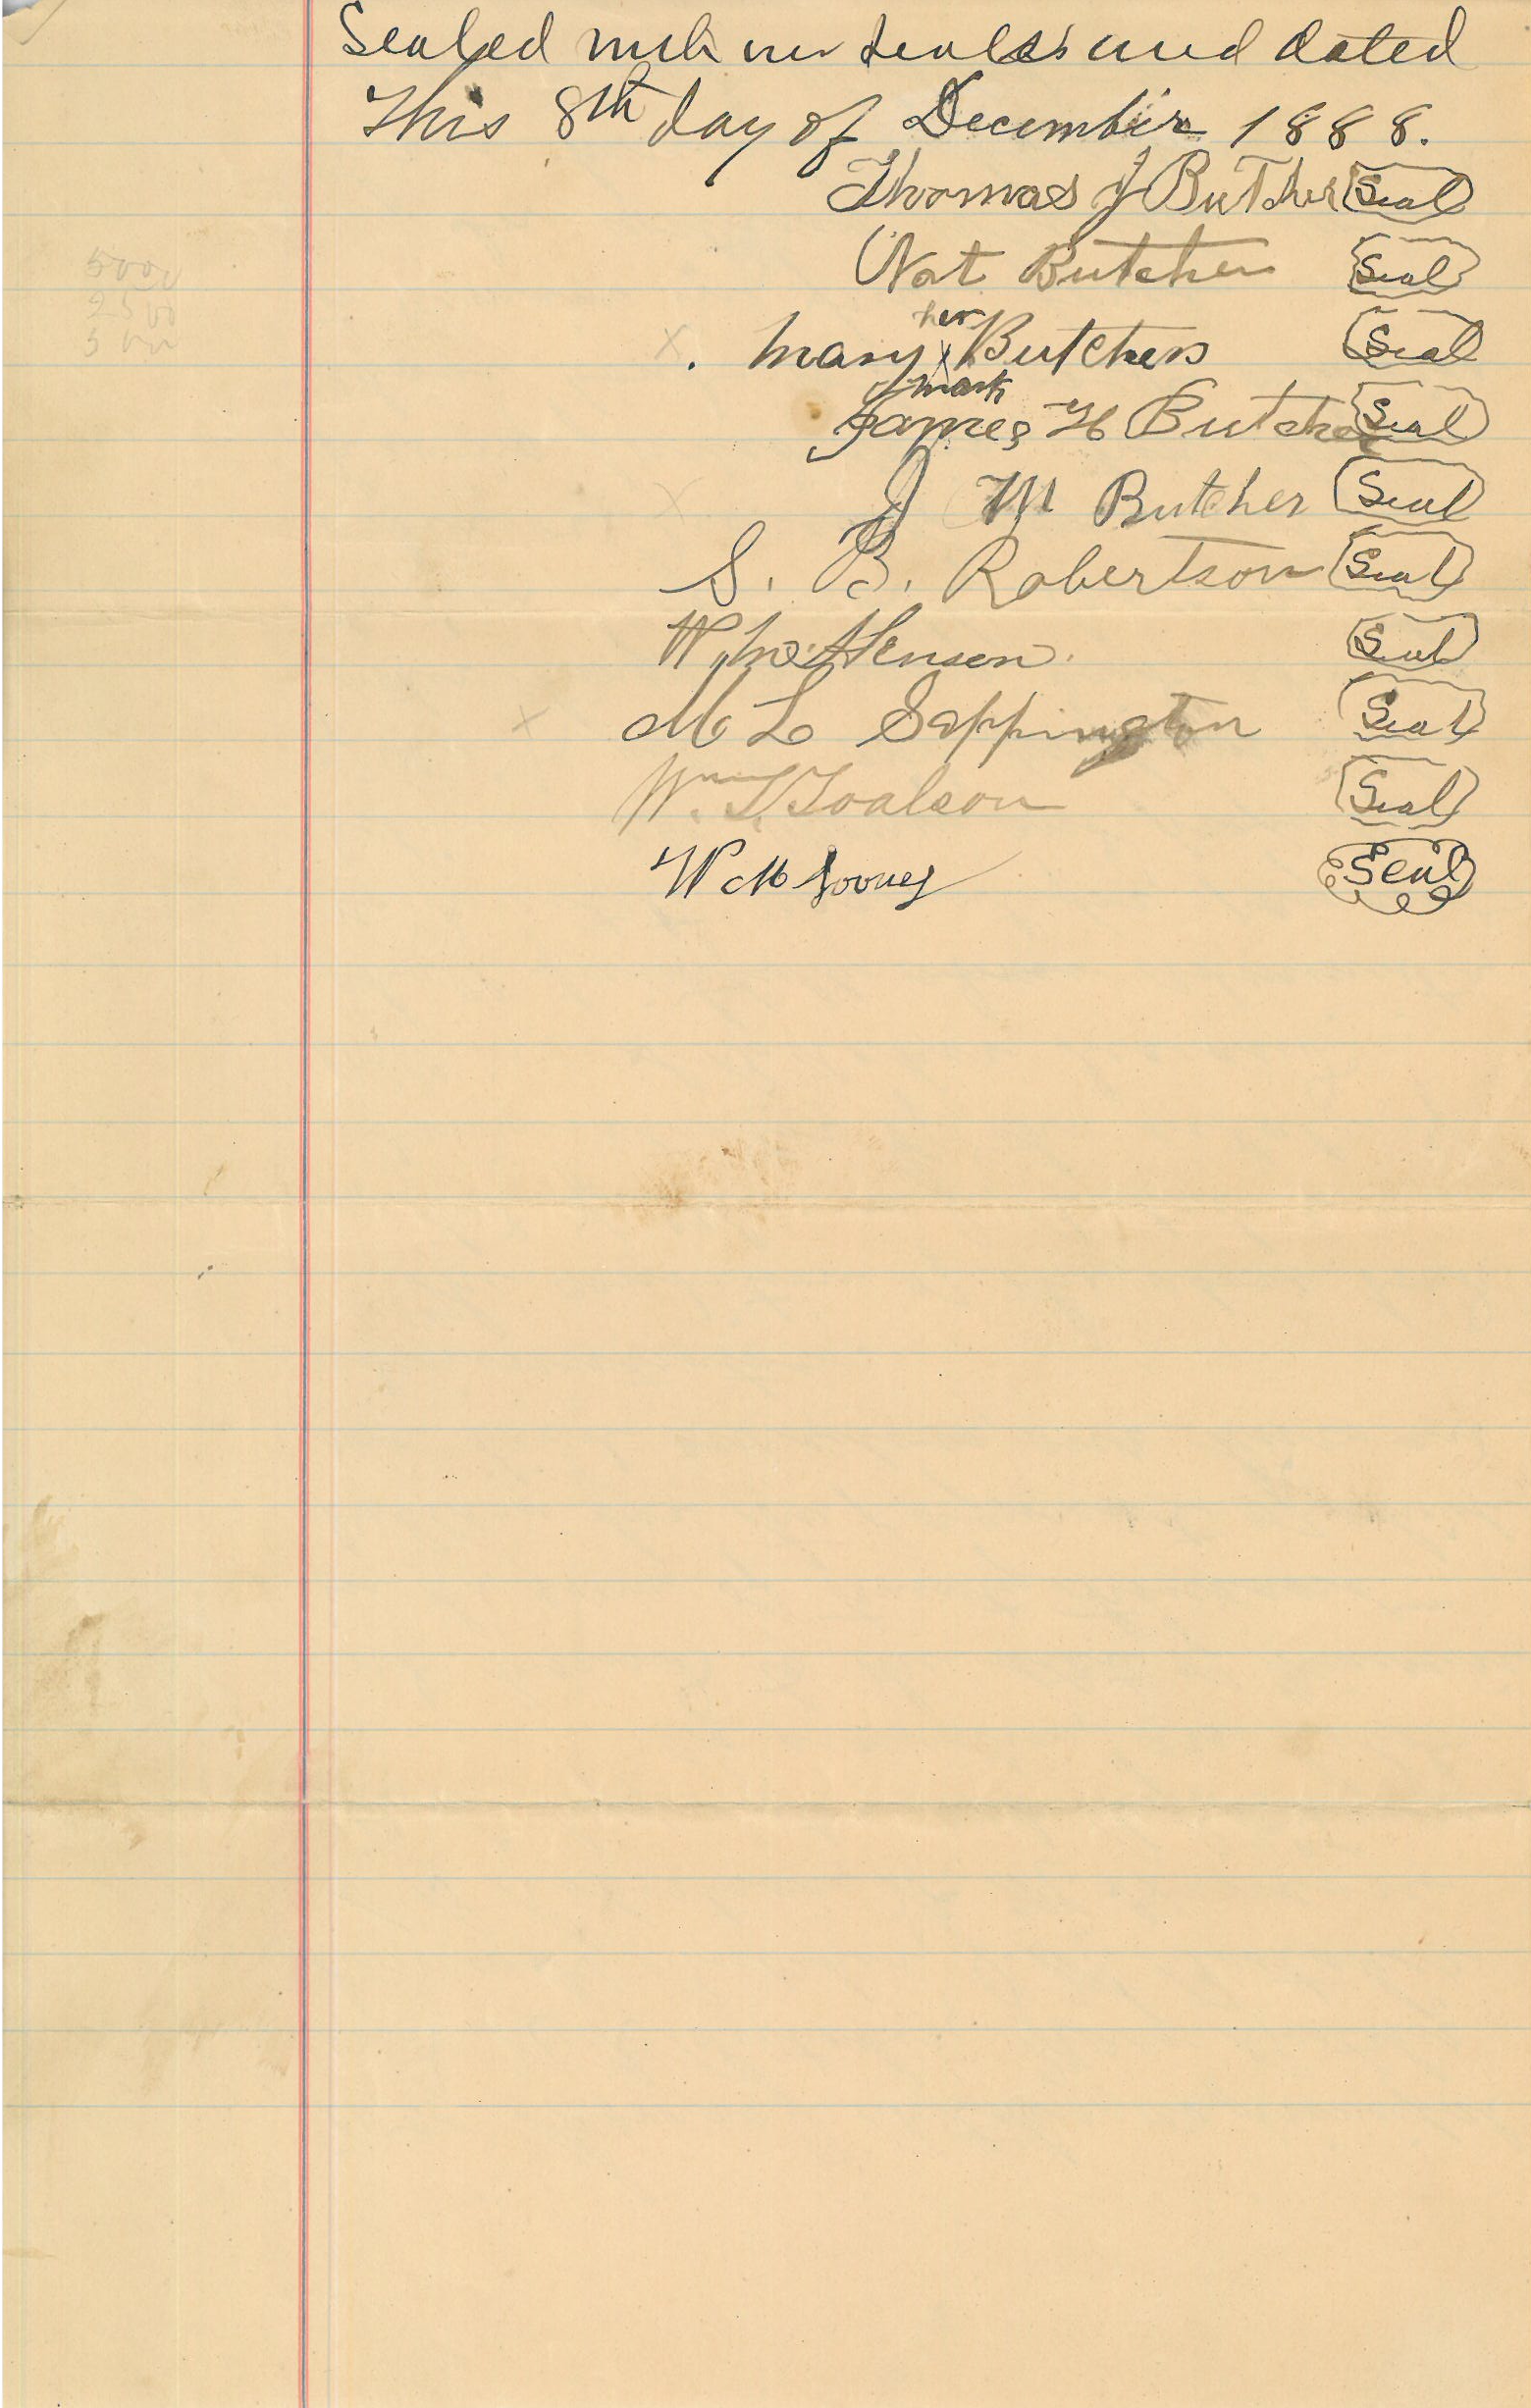 Sealed with our seals and dated
This 8th day of December 1888.
Thomas J Butcher Seal
Nat Butcher Seal
her
x . Mary x Butcher Seal
mark
James H Butcher Seal
x J M Butcher Seal
S. B. Robertson Seal
Henson. Seal
x M L Sappington Seal
Wm T. Toalson Seal
W M Seal
5000
2500
500